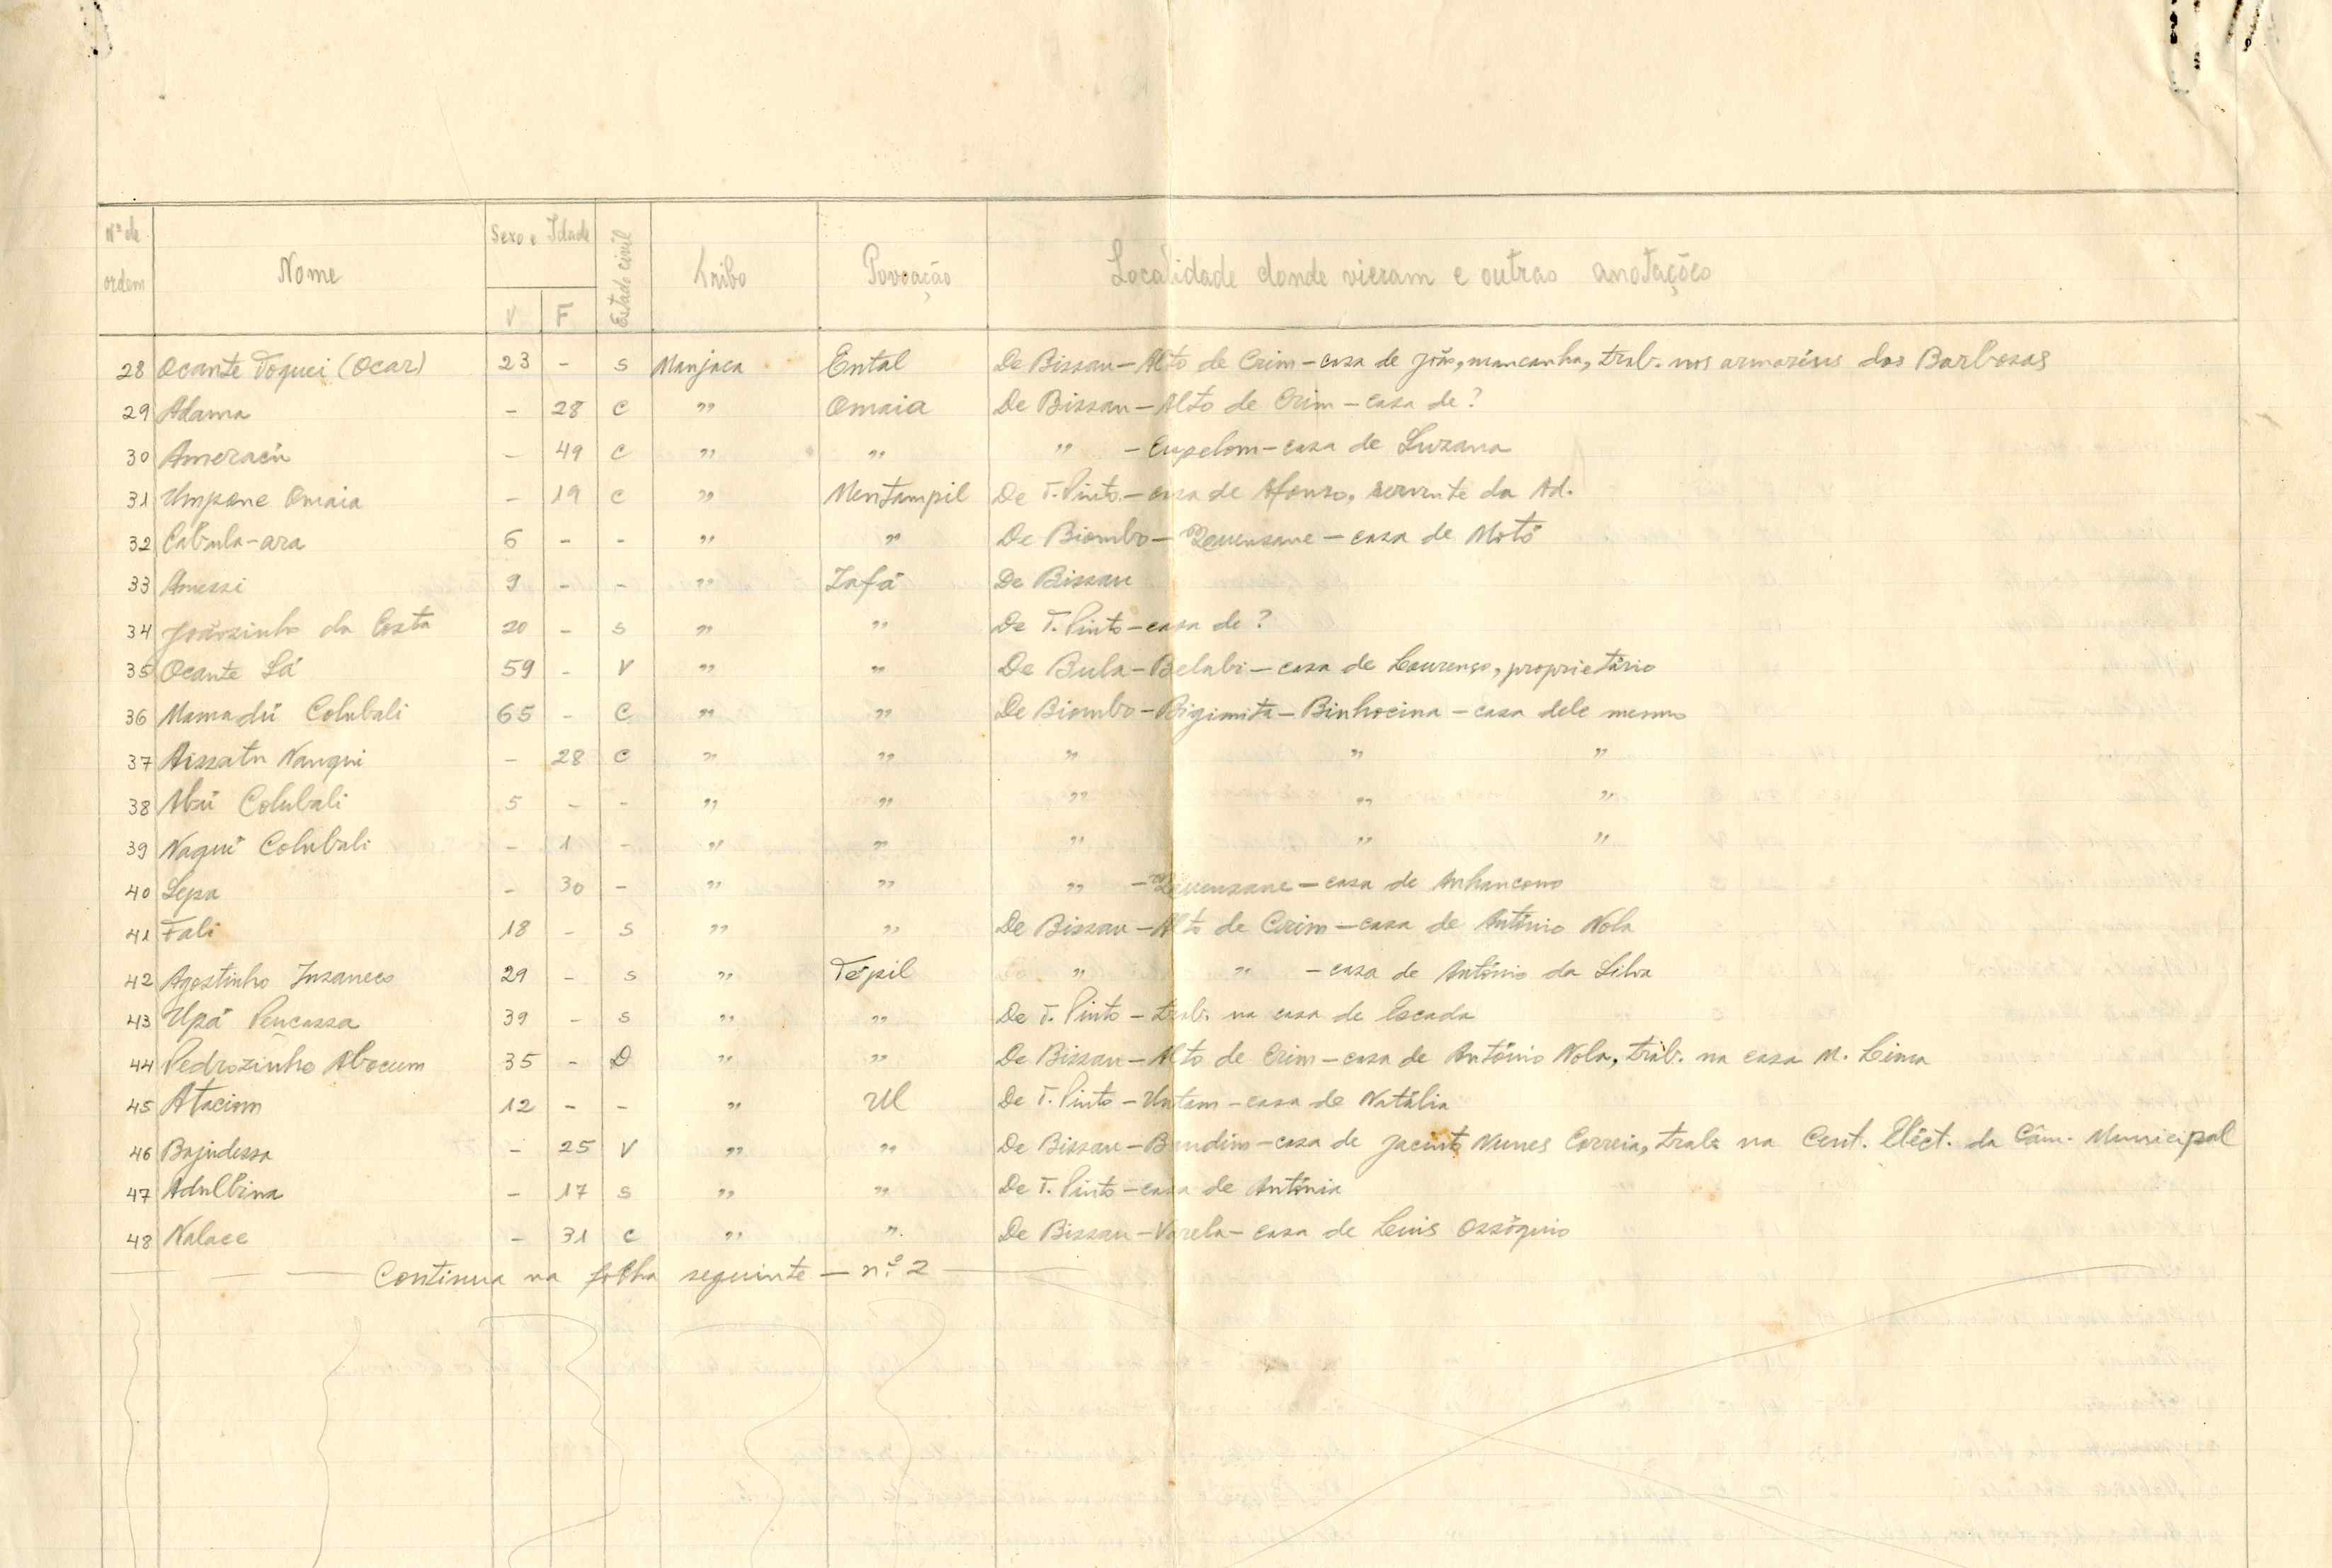 Nº de ordem Nome Sexo e Idade V F Estado civil Tribo Povoação Localidade donde vieram e outras anotações
28 Ocante Toquei (Ocar) 23 - s Manjaca Ental De Bissau - Alto de Crim - casa de João, mancanha, trab. nos armaréns dos Barbosas
29 Adama - 28 c " Omaia De Bissau - Alto de Crim - casa de ?
30 Ameracú - 49 c " " " - Cupelom - casa de Luzana
31 Umpane Omaia - 19 c " Mentampil De T. Pinto - casa de Afonso, servente da Ad.
32 Cabula-ara 6 - - " " De Biombo - - casa de Motó
33 Amessi 9 - - " Zafá De Bissau
34 Joãozinho da Costa 20 - s " " De T. Pinto - casa de ?
35 Ocante Lá 59 - V " " De Bula - Belabi - casa de Lourenço, proprietário
36 Mamadú Colubali 65 - C " " De Biombo - Bigimita - Binhocina - casa dele mesmo
37 Aissatu Nanqui - 28 c " " " " "
38 Abú Colubali 5 - - " " " " "
39 Naqui Colubali - 1 - " " " " "
40 Lepa - 30 - " " " - - casa de Anhancono
41 Fali 18 - s " " De Bissau - Alto de Crim - casa de António Nola
42 Agostinho Insaneco 29 - s " Tépil " " - casa de António da Silva
43 Upá Pencassa 39 - s " " De T. Pinto - trab. na casa de Escada
44 Pedrozinho Abocum 35 - D " " De Bissau - Alto de Crim - casa de António Nola, trab. na casa M. Lima
45 Ataciom 12 - - " Ul De T. Pinto - Untam - casa de Natália
46 Bajudessa - 25 V " " De Bissau - Bandim - casa de Jacinto Nunes Correia, trab. na Cent. Eléct. da Câm. Municipal
47 Adulbina - 17 s " " De T. Pinto - casa de Antónia
48 Nalace - 31 c " " De Bissau - Varela - casa de Luis Ossóquio
Continua na folha seguinte - n.º 2